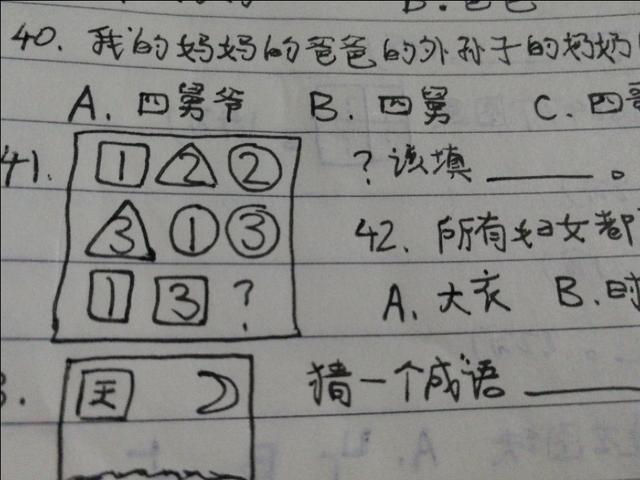 40. 我的妈妈的爸爸的外孙子的奶奶
A. 四舅爷 B. 四舅 C. 四
41. 1 2 2 ?该填______。
3 1 3 42. 所有妇女都
1 3 ? A. 大衣 B. 时
猜一个成语______